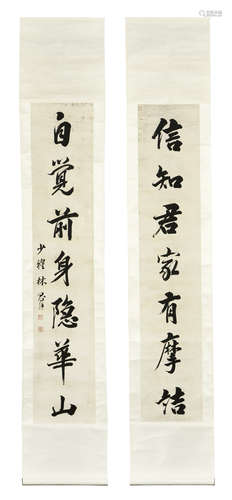 信知君家有摩詰
自覺前身隱華山
少穆林